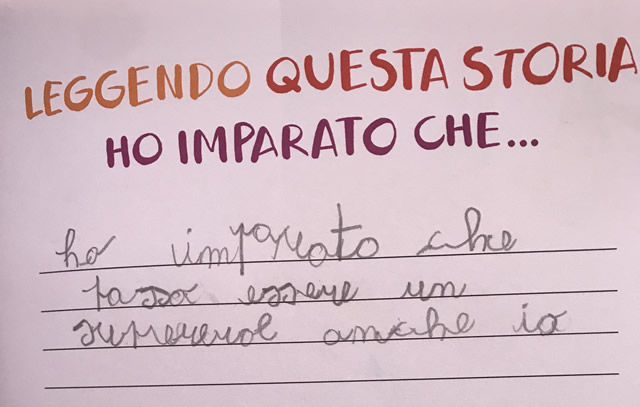 LEGGENDO QUESTA STORIA
HO IMPARATO CHE...
ho imparato che
posso essere un
supereroe anche io